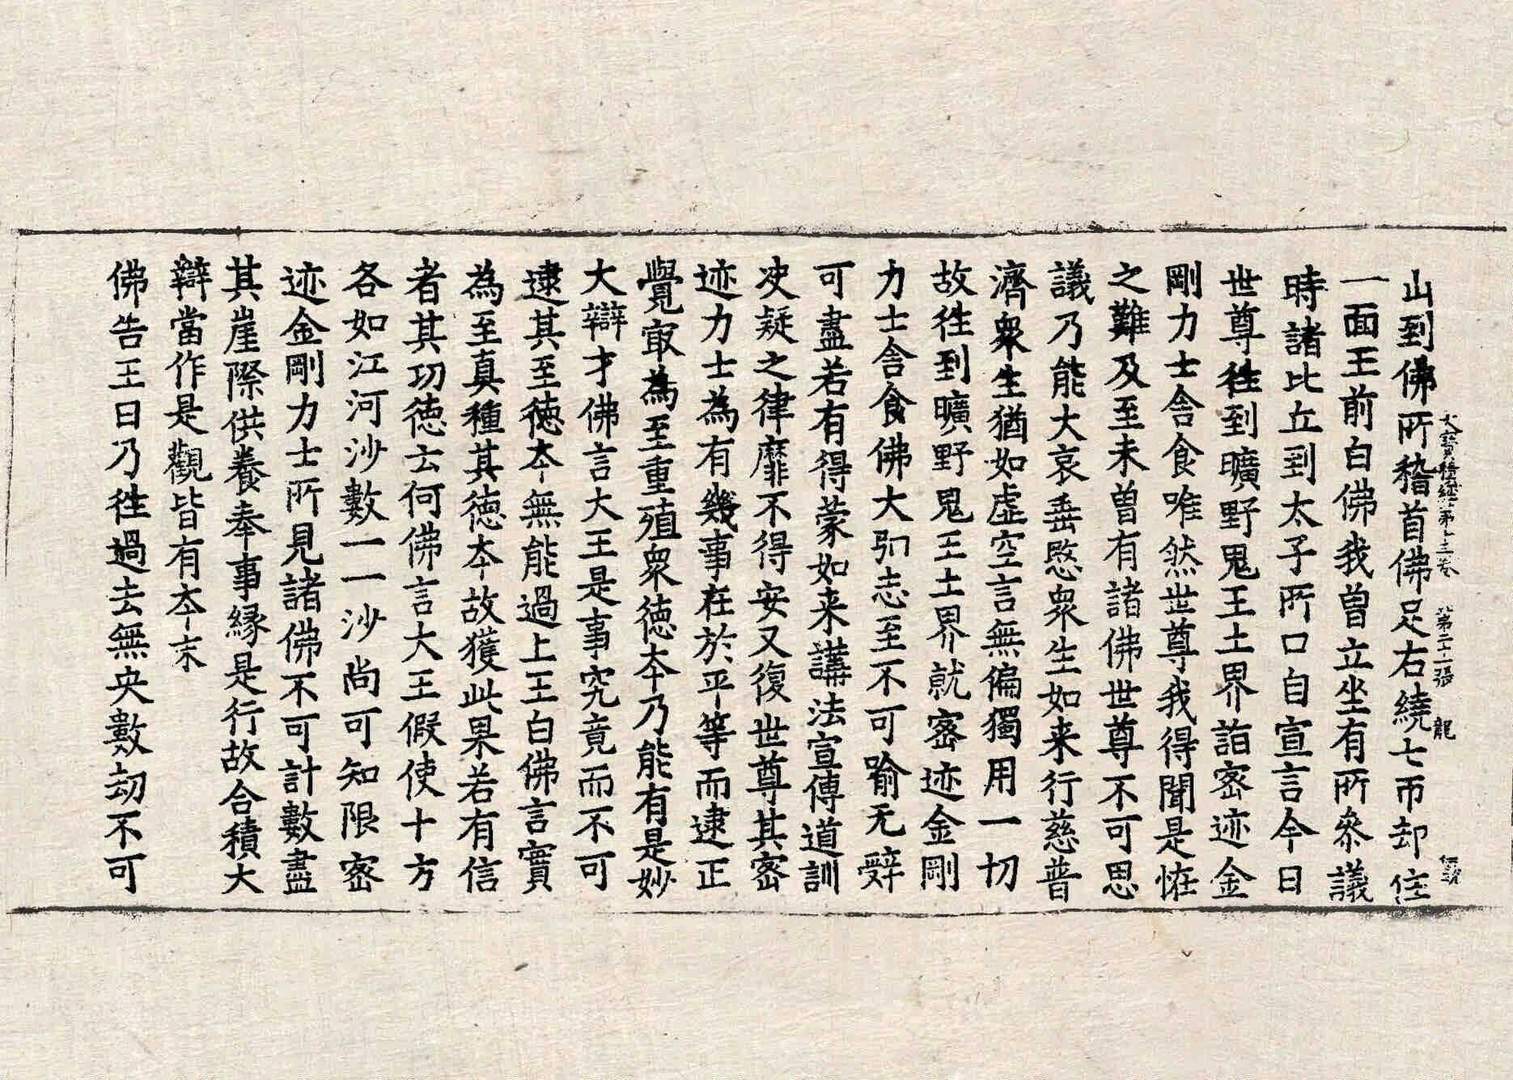 山到佛所稽首佛足右繞七帀却住
大寶積經第十三卷 第二十一張 龍
一面王前白佛我曽立坐有所叅議
時諸比丘到太子所口自宣言今日
世尊徃到曠野鬼王土界詣密迹金
剛力士舎食唯然世尊我得聞是恠
之難及至未曽有諸佛世尊不可思
議乃能大哀垂愍衆生如来行慈普
濟衆生猶如虚空言無偏獨用一切
故徃到曠野鬼王土界就密迹金剛
力士舎食佛大弘志至不可喻无辤
可盡若有得蒙如来講法宣傳道訓
决疑之律靡不得安又復世尊其密
迹力士為有幾事在於平等而逮正
覺㝡為至重殖衆徳夲乃能有是妙
大辯才佛言大王是事究竟而不可
逮其至徳夲無能過上王白佛言實
為至真種其徳夲故獲此果若有信
者其功徳云何佛言大王假使十方
各如江河沙數一一沙尚可知限密
迹金剛力士所見諸佛不可計數盡
其崖際供養奉事縁是行故合積大
辯當作是觀皆有夲末
佛告王曰乃徃過去無央數劫不可